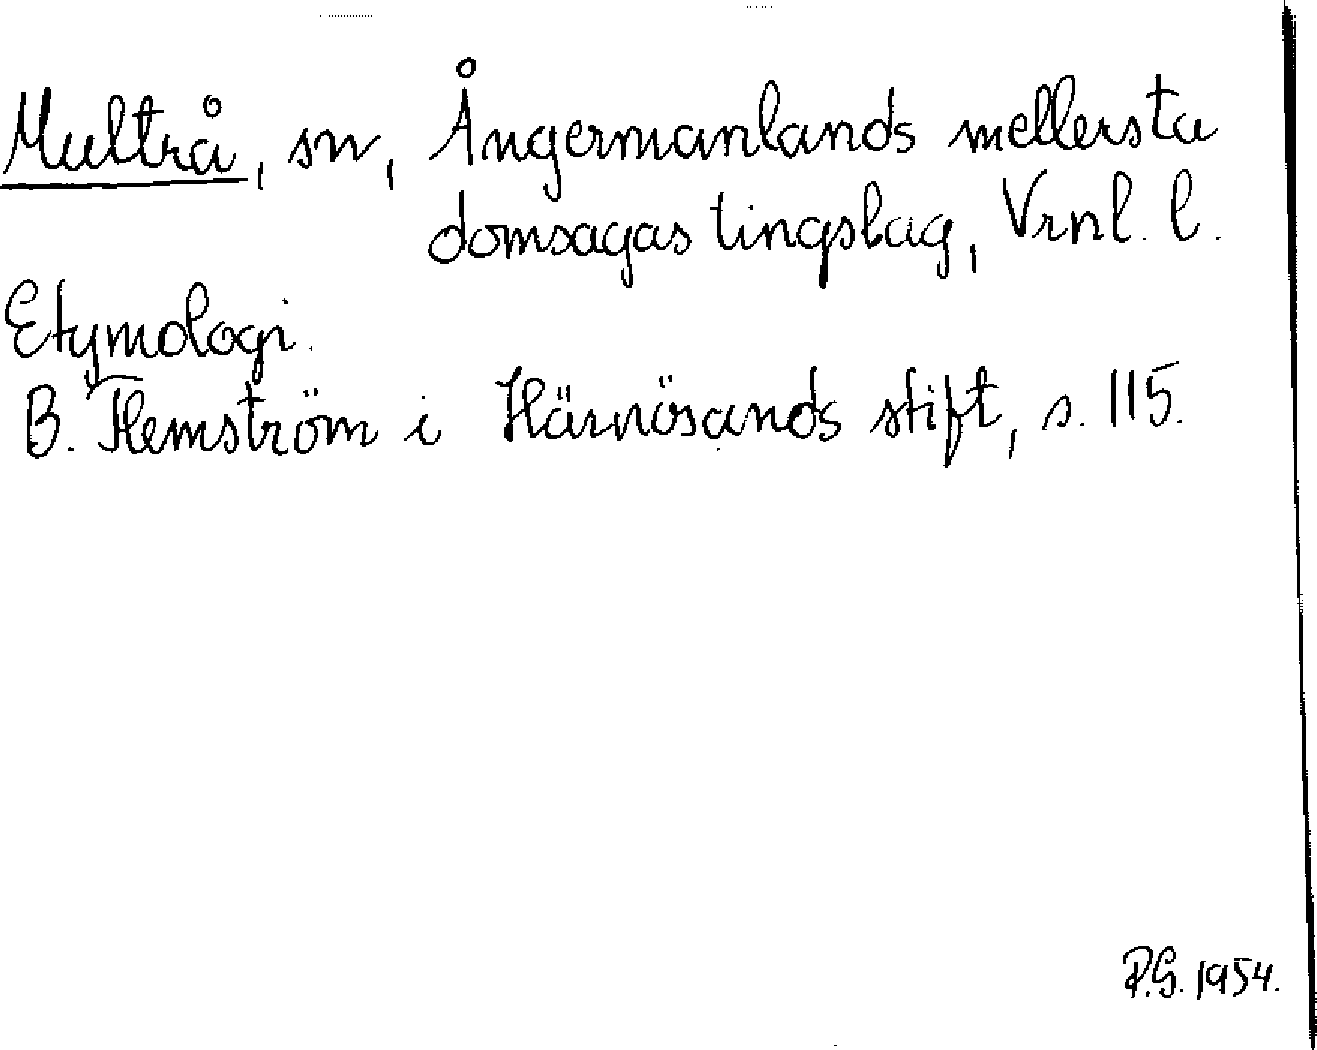 Multrå, sn, Ångermanlands mellersta
domsagas tingslag, Vrnl. l.
Etymologi.
B. Hemström i Härnösands stift, s. 115.
P.G. 1954.